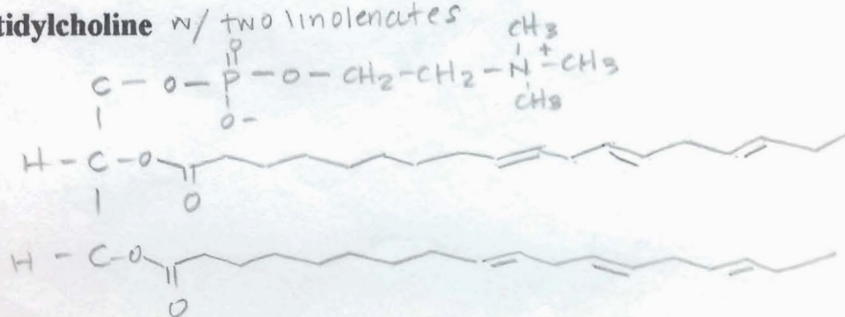 tidylcholine w/ two linolenates
O CH3
C - O - P - O - CH2 - CH2 - N + - CH3
O - CH3
H - C - O
O
H - C - O
O